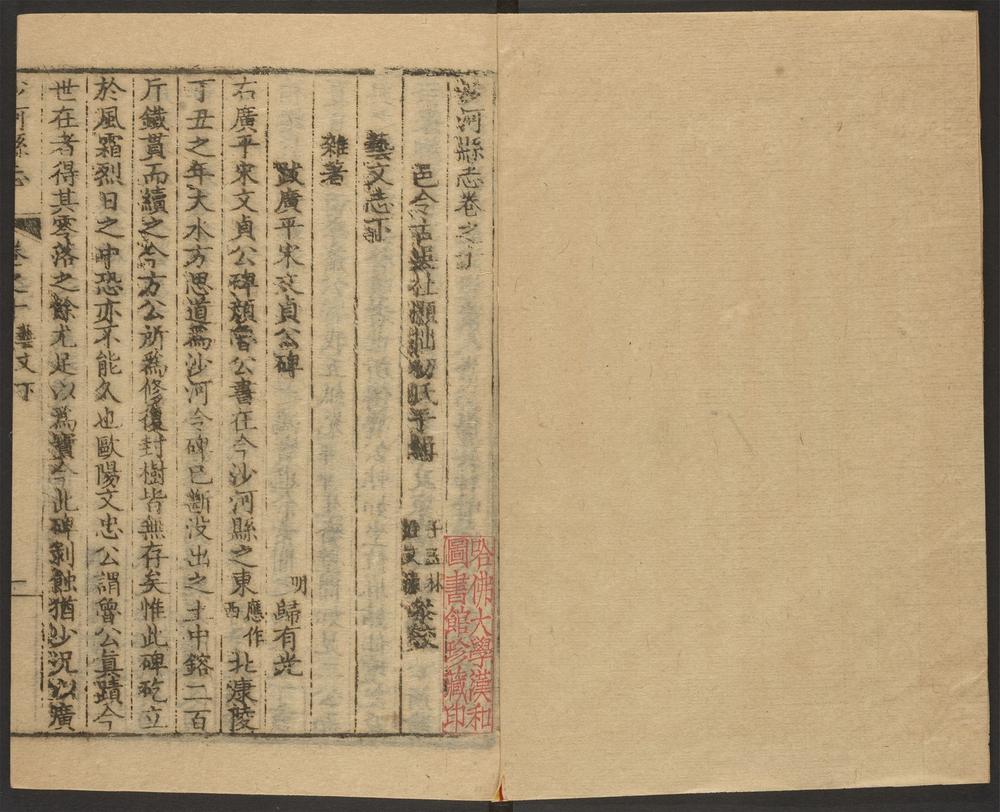 沙河縣志卷之十
邑令古
藝文志下
雜著
跋廣平宋文貞公碑
明 歸有光
右廣平宋文貞公碑顏魯公書在今沙河縣之東應作西北湡陵
丁丑之年大水方思道為沙河令碑已斷没出之土中鎔二百
斤鐵貫而續之今方公所為修復封樹皆無存矣惟此碑矻立
於風霜烈日之中恐亦不能久也歐陽文忠公謂魯公真蹟今
世在者得其零落之餘尤足以為寶今此碑剥蝕猶少況以廣
沙河縣志 卷之十 藝文下 一
哈佛大學漢和
圖書館珍藏印